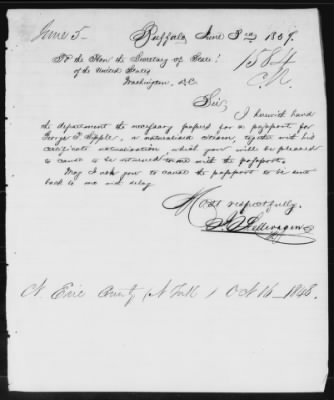 June 5-
Buffalo June 3rd 1859.
To the Hon. the Secretary of State!
of the United States
Washington, D.C.
1584
C.N.
Sir
I herewith hand
the department the necessary papers for a passport for
George F. Hipple, a naturalised citizen, together with his
certificate naturalisation, which you will be pleased
to cause to be returned to me with the passport.
May I ask you to cause the passport to be sent
back to me without delay
Most respectfully.
N Erie County N York Oct 16 - 1848.